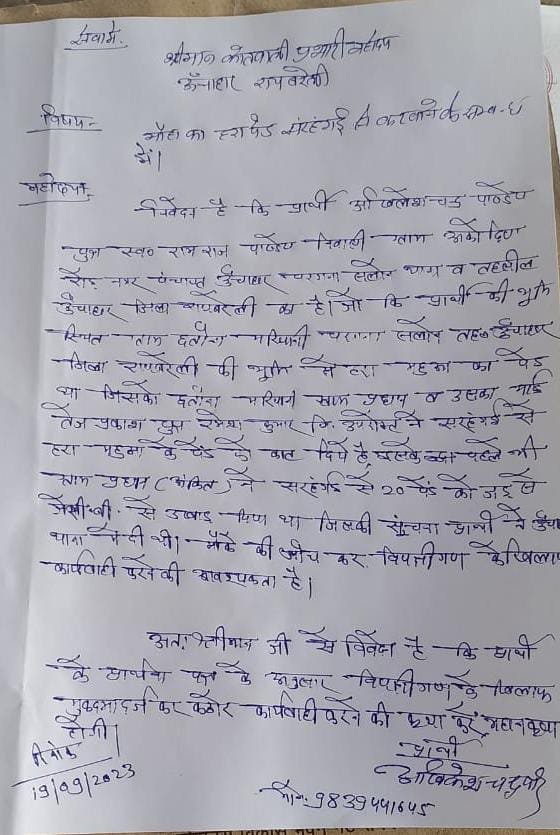 सेवामें,
श्रीमान कोतवाली प्रभारी महोदय
ऊँचाहार रायबरेली
विषय- महुआ का हरा पेड़ सरहंगई से कटवाने के सम्बन्ध
में।
महोदय,
निवेदन है कि प्रार्थी अखिलेश चन्द्र पाण्डेय
पुत्र स्व० राम राज पाण्डेय निवासी ग्राम
रोड नगर पंचायत ऊँचाहार परगना सलोन थाना व तहसील
ऊँचाहार जिला रायबरेली का है। जो कि प्रार्थी की भूमि
स्थित ग्राम परगना सलोन तह० ऊँचाहार
जिला रायबरेली की भूमि में हरा महुआ का पेड़
था जिसको ग्राम प्रधान व उसका भाई
तेज प्रकाश पुत्र कुमार नि. उपरोक्त ने सरहंगई से
हरा महुआ के पेड़ को काट दिये है इसके पहले भी
ग्राम प्रधान (अंकित) ने सरहंगई से 20 पेड़ को जड़ से
जेसीबी. से उखाड़ दिया था जिसकी सूचना प्रार्थी ने
थाना में दी थी। मौके की जाँच कर विपक्षीगण के खिलाफ
कार्यवाही करने की आवश्यकता है।
अतः श्रीमान जी से निवेदन है कि प्रार्थी
के प्रार्थना पत्र के अनुसार विपक्षीगण के खिलाफ
मुकदमा दर्ज कर कठोर कार्यवाही करने की कृपा करें, महान कृपा
होगी।
दिनांक
19/09/2023
प्रार्थी
मो०: 9839441645